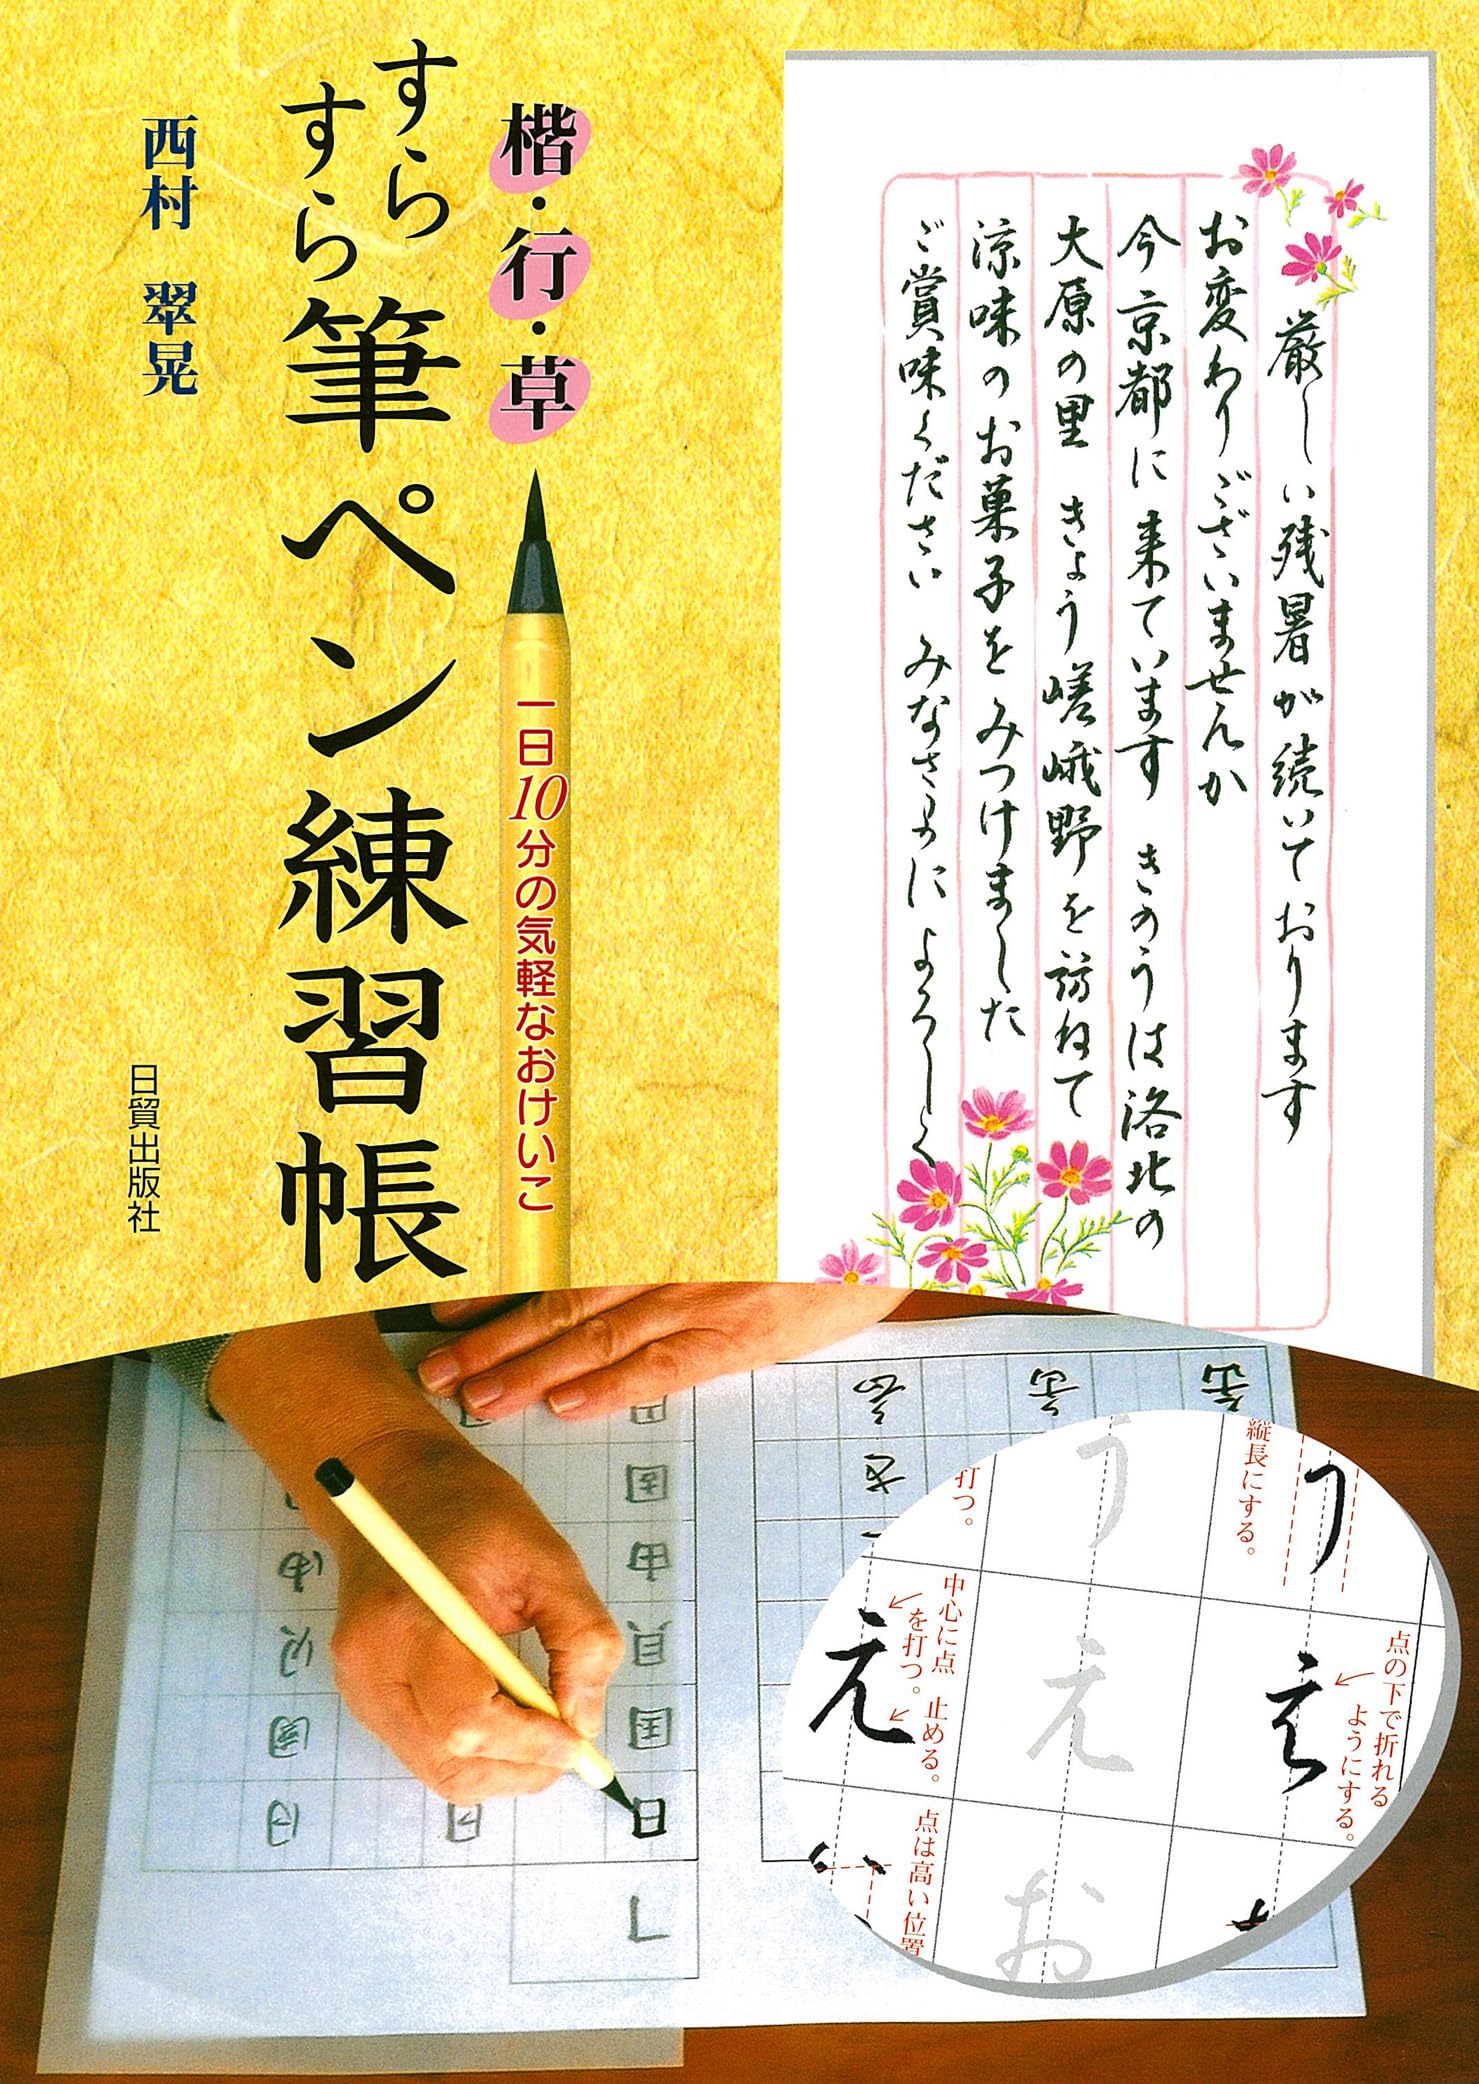 厳しい残暑が続いております
お変わりございませんか
今京都に来ています きのうは洛北の
大原の里 きょう嵯峨野を訪ねて
涼味のお菓子をみつけました
ご賞味ください みなさまによろしく
楷・行・草
一日10分の気軽なおけいこ
すらすら筆ペン練習帳
西村 翠晃
日貿出版社
縦長にする。
打つ。
う
う
点の下で折れる
ようにする。
え
え
え
中心に点
を打つ。
止める。
点は高い位置
お
日
国
貝
由